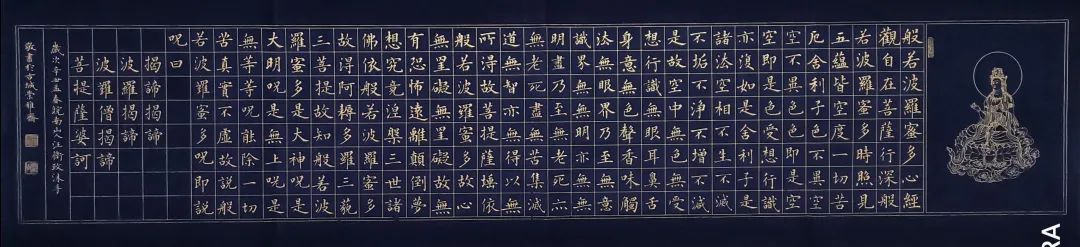 般若波羅蜜多心經
觀自在菩薩行深般
若波羅蜜多時照見
五蘊皆空度一切苦
厄舍利子色不異空
空不異色色即是空
空即是色受想行識
亦復如是舍利子是
諸法空相不生不滅
不垢不淨不增不減
是故空中無色無受
想行識無眼耳鼻舌
身意無色聲香味觸
法無眼界乃至無意
識界無無明亦無無
明盡乃至無老死亦
無老死盡無苦集滅
道無智亦無得以無
所得故菩提薩埵依
般若波羅蜜多故心
無罣礙無罣礙故無
有恐怖遠離顛倒夢
想究竟涅槃三世諸
佛依般若波羅蜜多
故得阿耨多羅三藐
三菩提故知般若波
羅蜜多是大神呪是
大明呪是無上呪是
無等等呪能除一切
苦真實不虛故說般
若波羅蜜多呪即說
呪曰
揭諦揭諦
波羅揭諦
波羅僧揭諦
菩提薩婆訶
歲次辛丑春皖南山人汪衛玫沐手
敬書於古城崇雅齋
RA